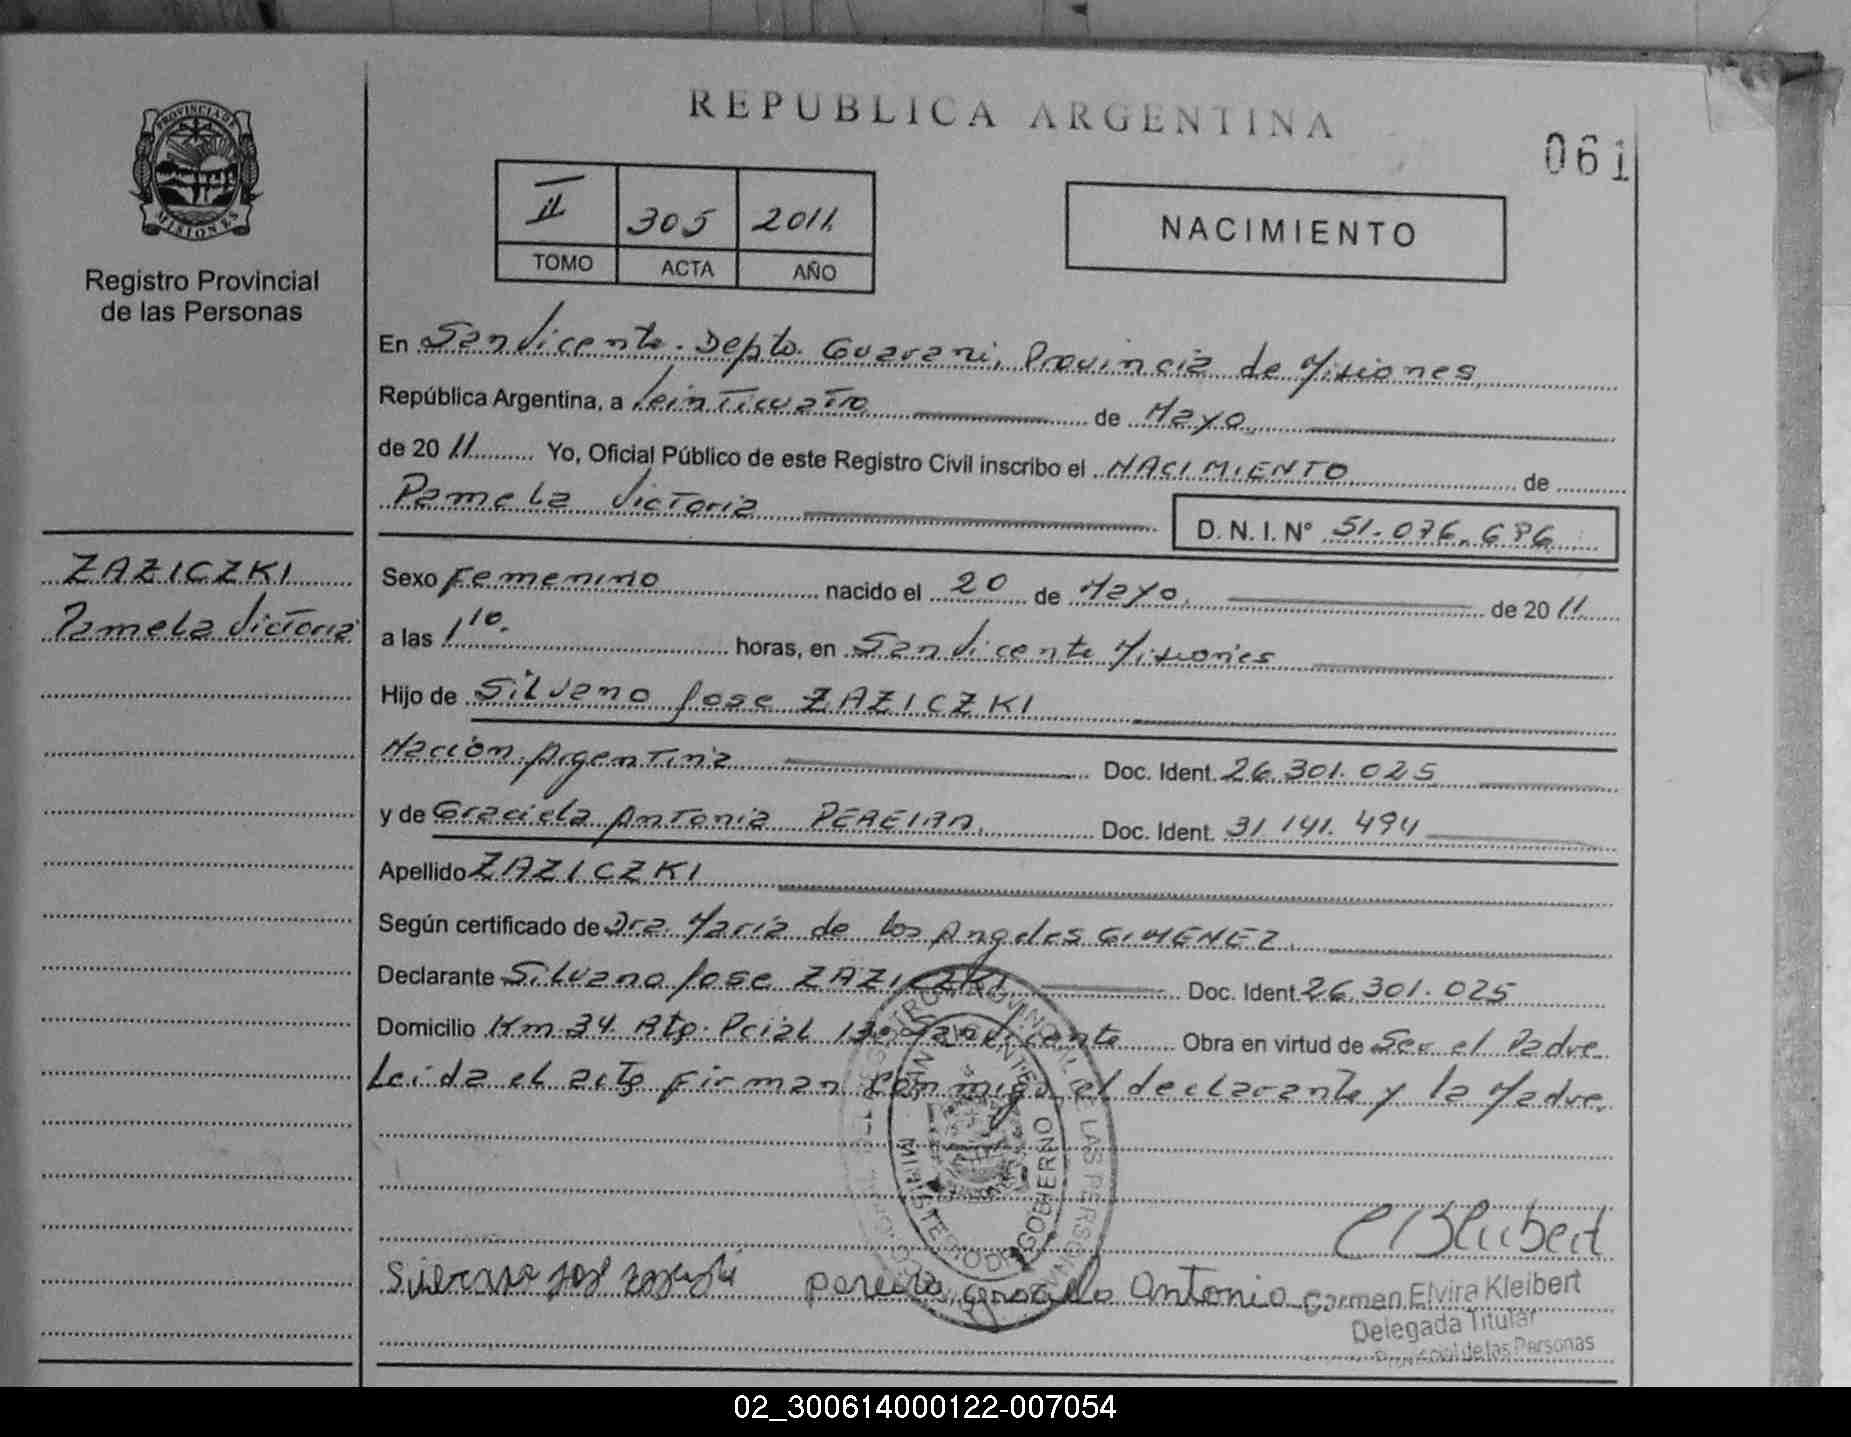 REPUBLICA ARGENTINA
061
PROVINCIA DE
MISIONES
Registro Provincial
de las Personas
II 305 2011
TOMO ACTA AÑO
NACIMIENTO
En San Vicente. Depto. Guarani, Provincia de Misiones
República Argentina, a Veinticuatro de Mayo
de 2011 Yo, Oficial Público de este Registro Civil inscribo el NACIMIENTO de
Pamela Victoria D. N. I. N° 51.076.696
ZAZICZKI
Pamela Victoria
Sexo Femenino nacido el 20 de Mayo de 2011
a las 1 10. horas, en San Vicente Misiones
Hijo de Silvano Jose ZAZICZKI
Nación Argentina Doc. Ident. 26.301.025
y de Graciela Antonia PEREIRA Doc. Ident. 31.141.494
Apellido ZAZICZKI
Según certificado de Dra. Maria de los Angeles GIMENEZ
Declarante Silvano Jose ZAZICZKI Doc. Ident. 26.301.025
Domicilio Km 34 Rta. Pcial 13 San Vicente Obra en virtud de Ser el Padre
Leida el acta firman conmigo el declarante y la Madre.
MINISTERIO DE GOBIERNO
pereira graciela Antonia
Carmen Elvira Kleibert
Delegada Titular
Provincial de las Personas
02_300614000122-007054